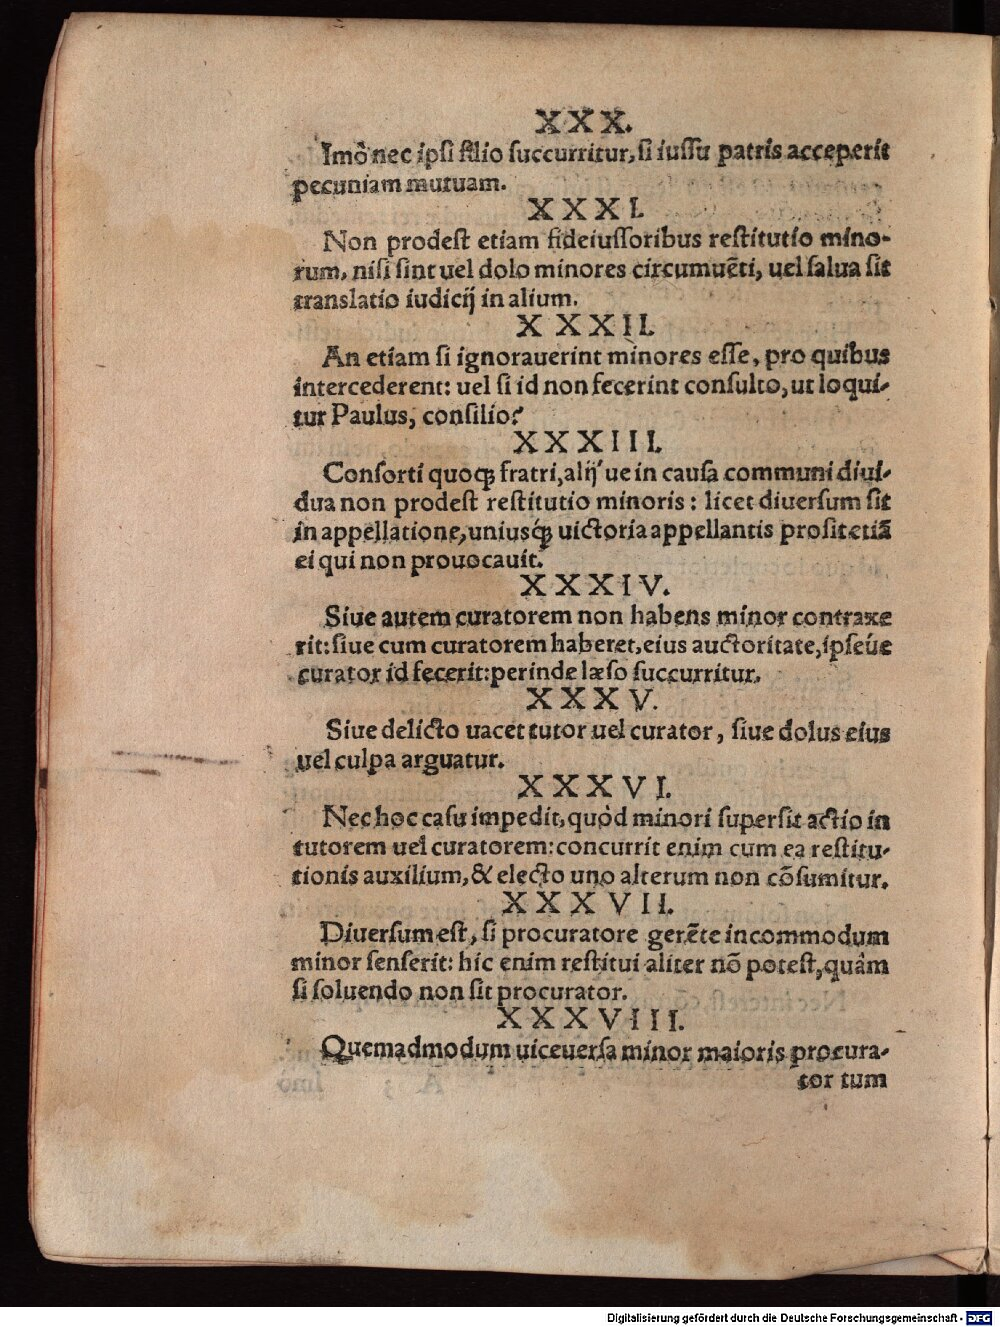 XXX.
Imò nec ipsi filio succurritur, si iussu patris acceperit
pecuniam mutuam.
XXXI.
Non prodest etiam fideiussoribus restitutio mino-
rum, nisi sint uel dolo minores circumuẽti, uel salua sit
translatio iudicij in alium.
XXXII.
An etiam si ignorauerint minores esse, pro quibus
intercederent: uel si id non fecerint consulto, ut loqui-
tur Paulus, consilio?
XXXIII.
Consorti quoq; fratri, alij ue in causa communi diui-
dua non prodest restitutio minoris: licet diuersum sit
in appellatione, uniusq́; uictoria appellantis prosit etiã
ei qui non prouocauit.
XXXIV.
Siue autem curatorem non habens minor contraxe
rit: siue cum curatorem haberet, eius auctoritate, ipseúe
curator id fecerit: perinde læso succurritur.
XXXV.
Siue delicto uacet tutor uel curator, siue dolus eius
uel culpa arguatur.
XXXVI.
Nec hoc casu impedit, quòd minori supersit actio in
tutorem uel curatorem: concurrit enim cum ea restitu-
tionis auxilium, & electo uno alterum non cõsumitur.
XXXVII.
Diuersum est, si procuratore gerẽte incommodum
minor senserit: hic enim restitui aliter nõ potest, quàm
si soluendo non sit procurator.
XXXVIII.
Quemadmodum uiceuersa minor maioris procura-
tor tum
Digitalisierung gefördert durch die Deutsche Forschungsgemeinschaft - DFG